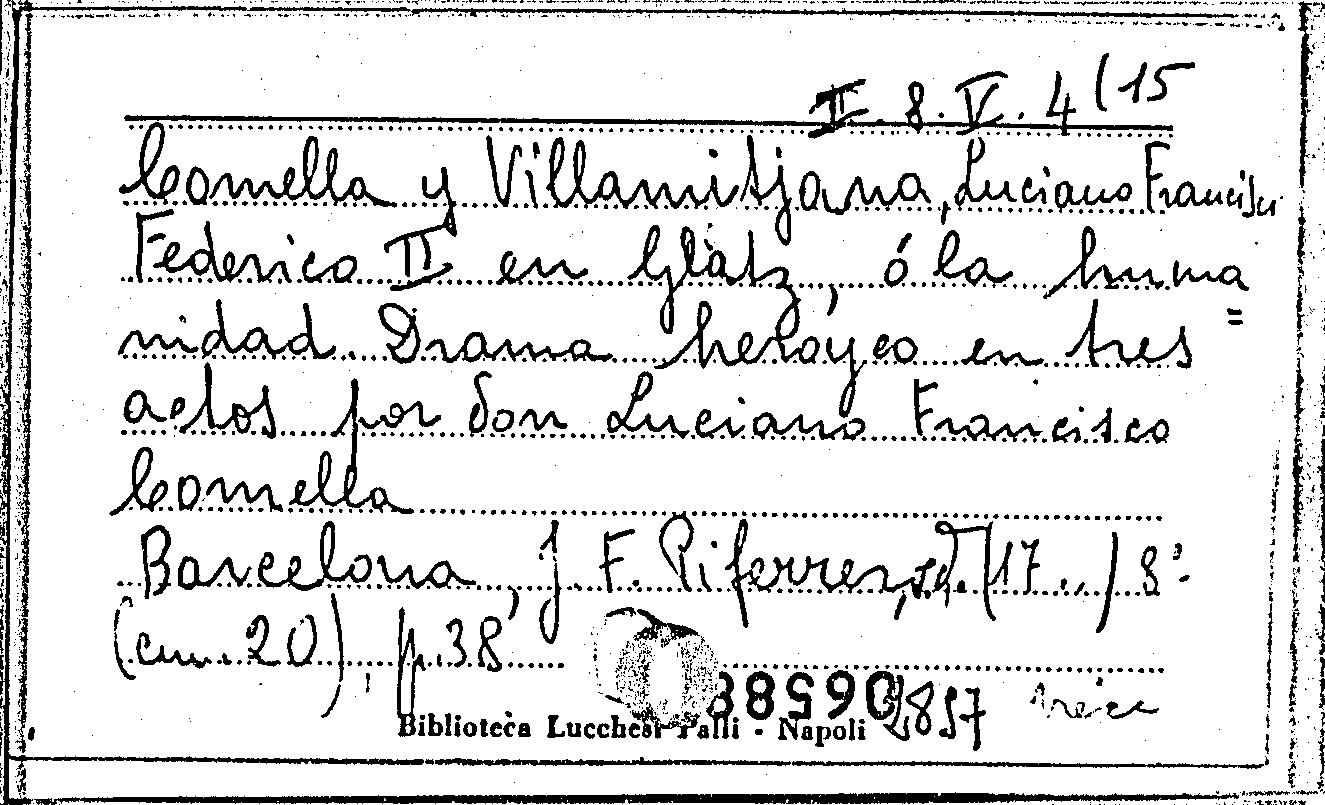 II. 8. V. 4 (15
Comella y Villamitjana, Luciano Francisco
Federico II en Glatz, ó la huma
nidad. Drama heroyco en tres =
actos por don Luciano Francisco
Comella
Barcelona, J. F. Piferrer, s.d. /17../ 8°.
(cm. 20), p. 38
Biblioteca Lucchesi Palli - Napoli